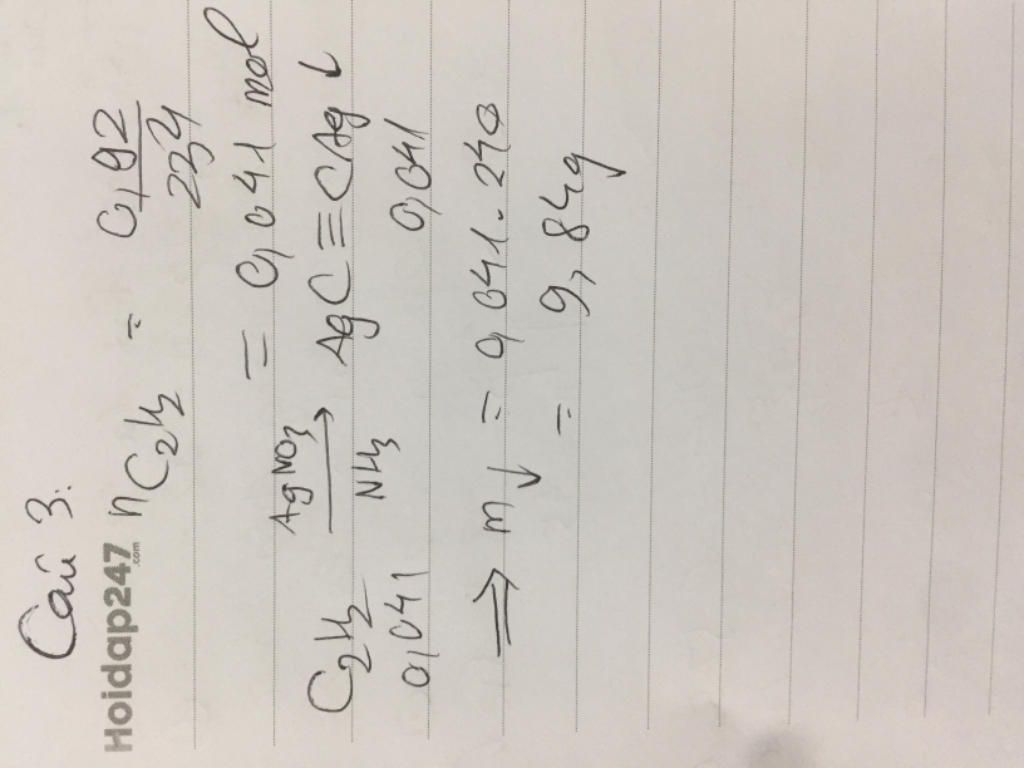 Câu 3:
Hoidap247.com
nC2H2 = 0,92 / 224
= 0,041 mol
C2H2 AgNO3 → NH3 AgC≡CAg ↓
0,041 0,041
⇒ m↓ = 0,041.240
= 9,84g